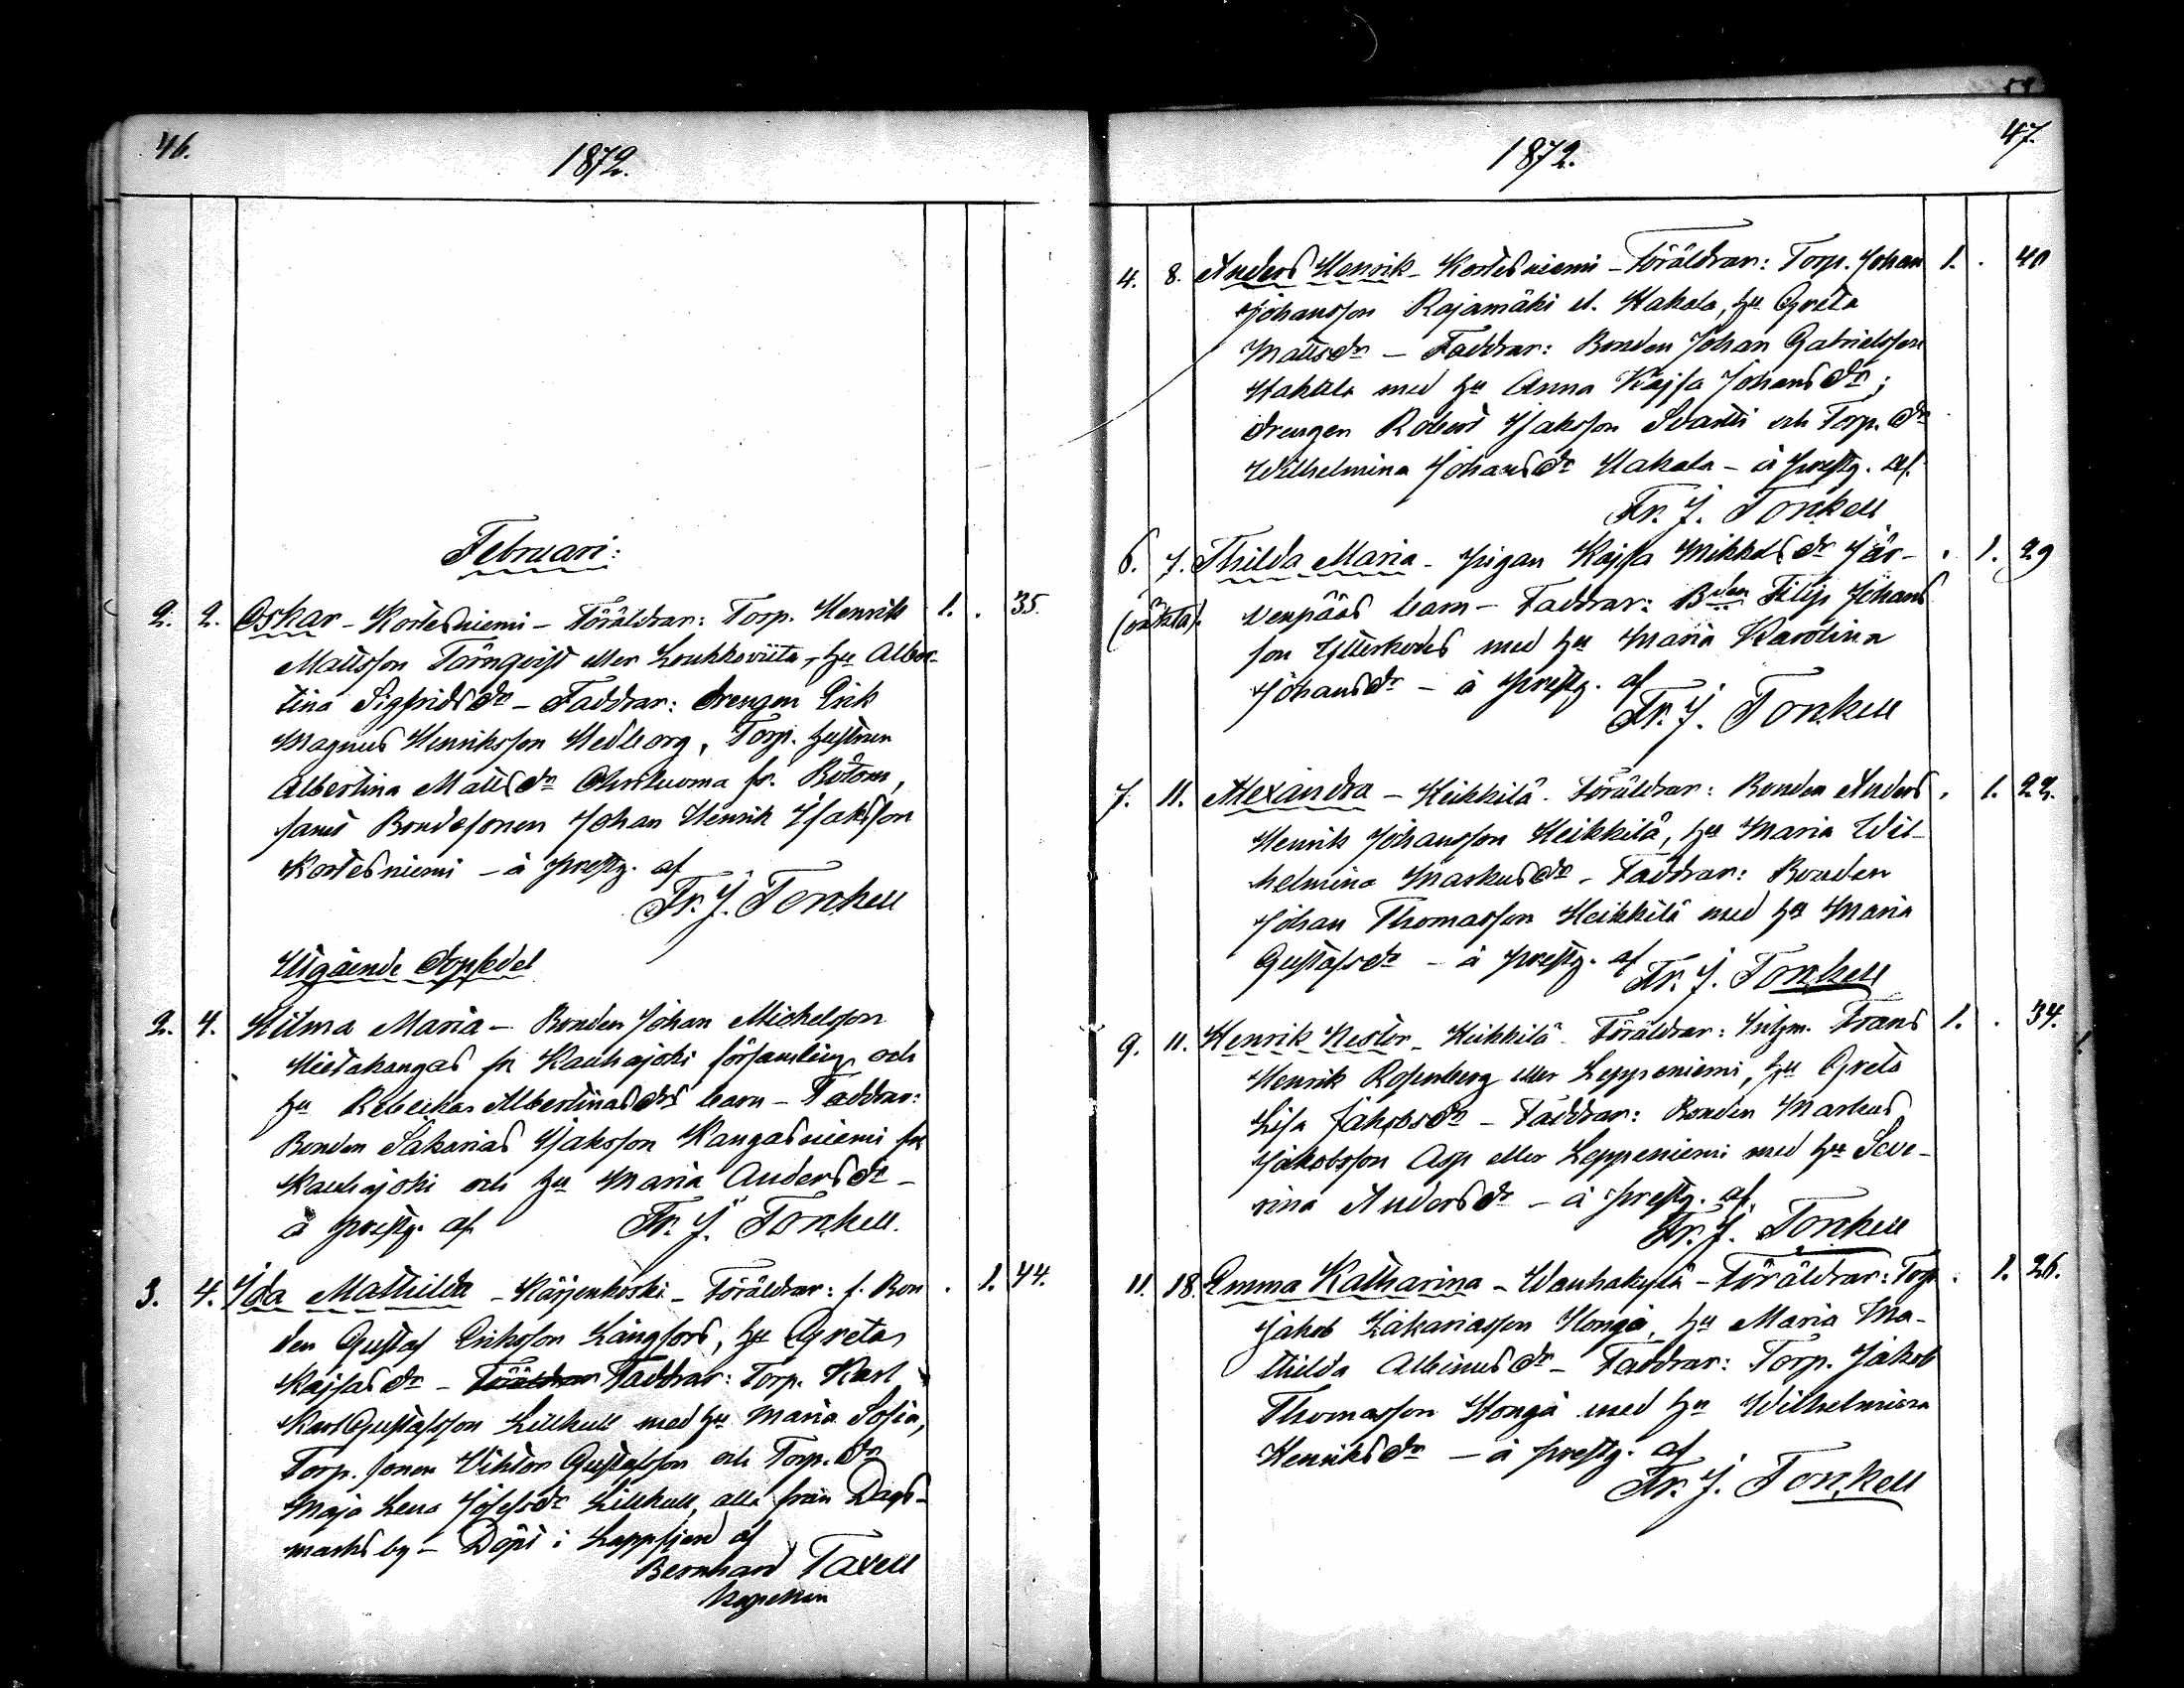 46.
1872.
Februari:
2. 2. Oskar - Kortesniemi - Föräldrar: Torp. Henrik 1. . 35.
Mattsson Törnqvist eller Loukkoviita, hu Alber-
tina Sigfridsdr - Faddrar: drengen Erik
Magnus Henriksson Hedborg, Torp. hustrun
Albertina Mattsdr fr. Bötom,
samt Bondesonen Johan Henrik Isaksson
Kortesniemi - å prestg. af
Fr. J. Tonkell
Utgående dopsedel
2. 4. Hilma Maria - Bonden Johan Michelsson
Hietakangas fr Kauhajoki församling och
hu Rebecka Albertinasdrs barn - Faddrar:
Bonden Sakarias Isaksson Kangasniemi fr
Kauhajoki och hu Maria Andersdr -
å prestg. af Fr. J. Tonkell.
3. 4. Ida Mathilda - Kärjenkoski - Föräldrar: f. Bon . 1. 44.
den Gustaf Eriksson Långfors, hu Greta
Kajsasdr - Föräldrar Faddrar: Torp. Karl
Karl Gustafsson Lillkull med hu Maria Sofia,
Torp. sonen Viktor Gustafsson och Torp. dr
Maja Lena Josefsdr Lillkull, alla från Dags-
marks by - Döpt i Lappfjerd af
Bernhard Taxell
Kapellan
1872.
47.
4. 8. Anders Henrik - Kortesniemi - Föräldrar: Torp. Johan 1. . 40
Johansson Rajamäki el. Hakala, hu Greta
Mattsdr - Faddrar: Bonden Johan Gabrielsson
Hakala med hu Anna Kajsa Johansdr;
drengen Robert Isaksson Svartti och Torp. dr
Wilhelmina Johansdr Hakala - å prestg. af
Fr. J. Tonkell
6. 7. Thilda Maria - Pigan Kajsa Mikkelsdr Jär- . 1. 29
(oäkta). venpääs barn - Faddrar: Bden Filip Johans
son Ytterkortes med hu Maria Karolina
Johansdr - å prestg. af
Fr. J. Tonkell
7. 11. Alexandra - Heikkilä - Föräldrar: Bonden Anders . 1. 22.
Henrik Johansson Heikkilä, hu Maria Wil-
helmina Markusdr - Faddrar: Bonden
Johan Thomasson Heikkilä med hu Maria
Gustafsdr - å prestg. af
Fr. J. Tonkell
9. 11. Henrik Nestor - Heikkilä - Föräldrar: Inhm. Frans 1. . 34.
Henrik Rosenberg eller Leppeniemi, hu Greta
Lisa Jakobsdr - Faddrar: Bonden Markus
Jakobsson Asp eller Leppeniemi med hu Seve-
rina Andersdr - å prestg. af
Fr. J. Tonkell
11. 18. Emma Katharina - Wanhakylä - Föräldrar: Torp . 1. 26.
Jakob Zakariasson Honga, hu Maria Ma-
thilda Albinusdr - Faddrar: Torp. Jakob
Thomasson Honga med hu Wilhelmina
Henriksdr - å prestg. af
Fr. J. Tonkell